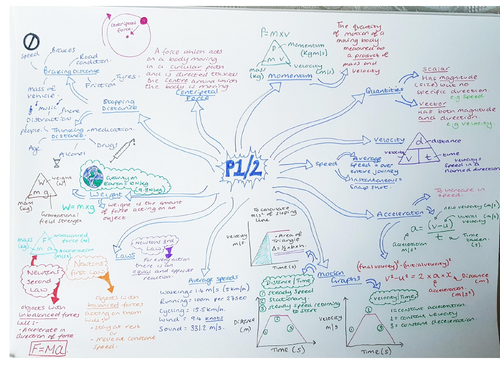 P1/2
Centripetal
Force
A force which acts
on a body moving
in a circular path
and is directed towards
the centre around which
the body is moving
Centripetal
Force
P = M x V
Momentum
(Kgm/s)
mass
(kg)
Velocity
(m/s)
Momentum
The quantity
of motion of a
moving body
measured as
a product of
mass and
velocity
Quantities
Scalar
Has magnitude
(size) but no
specific direction.
e.g Speed
Vector
Has both magnitude
and direction
e.g velocity
Velocity
distance
velocity
time
Velocity =
Speed in a
named direction
Speed
Average
Speed = over
entire journey
Instantaneous =
Snap shot
Acceleration
To increase in
speed.
a = (v-u)
t
final velocity
initial velocity
m/s
Acceleration
m/s²
Time
taken
(s)
(final velocity)² - (initial velocity)²
v² - u² = 2 x a x x
Distance
(m)
acceleration
(m/s²)
Motion
Graphs
To calculate
area of sloping
line
Area of
Triangle
Velocity
m/s
Time (s)
Distance/Time
Steady Speed
Stationary
Steady speed returning
to start
Distance
(m)
Time (s)
Velocity/Time
1 = constant acceleration
2 = constant velocity
3 = constant deceleration
Velocity
m/s
Time (s)
Average Speeds
Walking: 1.4 m/s (5km/h)
Cycling: 15.5km/h
Sound: 331.2 m/s
Laws
Newtons 3rd
Law
For every action
there is an
equal and opposite
reaction
Newtons
First Law
Objects with
balanced forces
acting on them
will:
Stay at rest
or
Move at constant
speed
Newtons
Second
Law
Objects with
unbalanced forces
will:
Accelerate in
direction of force
F=Ma
mass
(kg)
acceleration
m/s²
Weight
Gravity on
Earth = 10N/kg
W = mxg
Weight is the amount
of force acting on an
object
Weight (N)
mass
(kg)
Gravitational
field strength
Stopping
Distance
Braking Distance
Speed
Brakes
Road
condition
Tyres
Friction
mass of
vehicle
Thinking
Distance
music phone
Distraction
people
Age
Alcohol
Drugs
medication